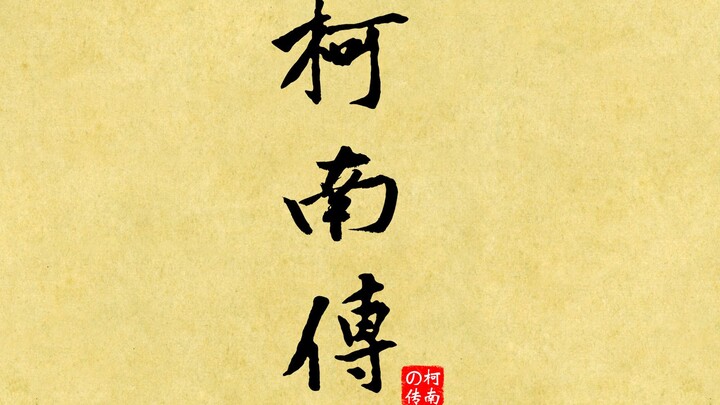 柯南傳
柯南
の传